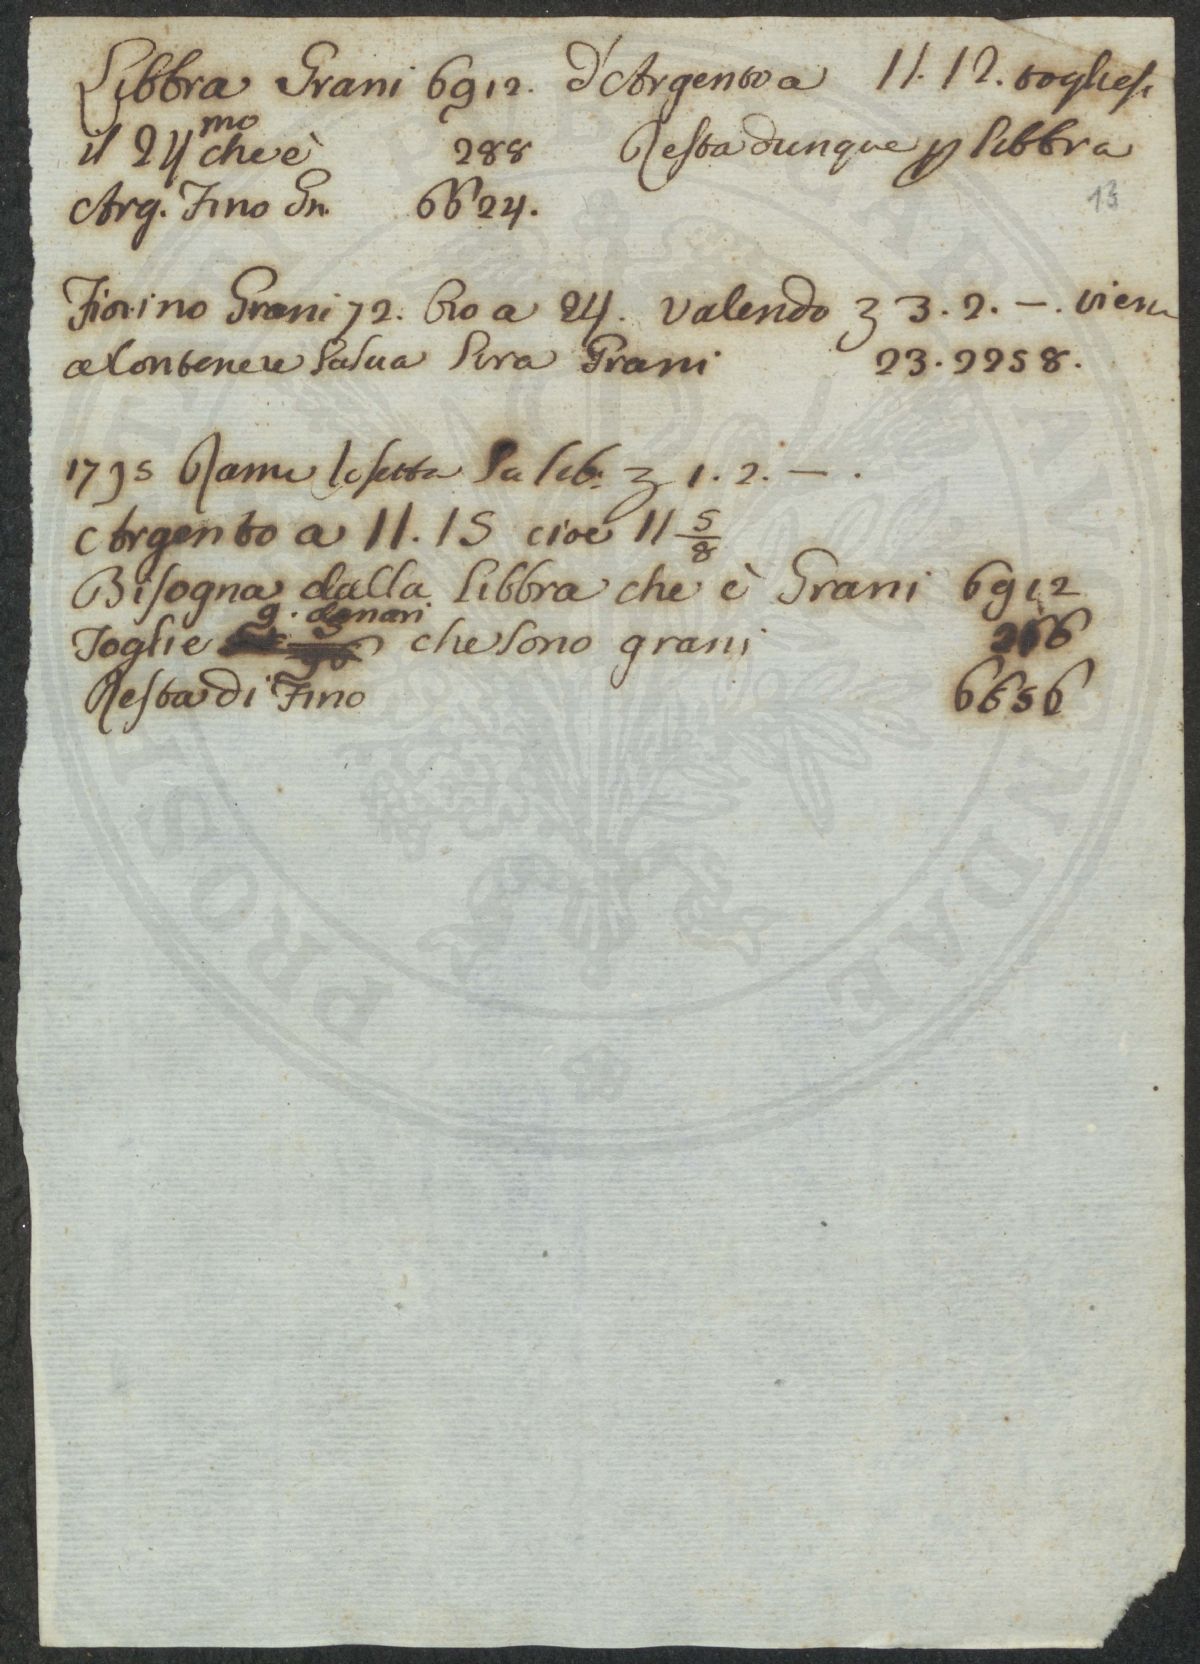 Libbra Grani 6912. d'Argento a 11.12. togliesi
il 24mo che è 288 Resta dunque p libbra
Arg. Fino Gn. 6624.
13
Fiorino Grani 72. Oro a 24. valendo 3. 2. –. viene
a Contenere la sua lira Grani 23.2258.
1795 Rame Rosetta la lib: 1. 2. – .
Argento a 11.15 cioe 11 5/8
Bisogna dalla Libbra che è Grani 6912
9. denari
Toglie che sono grani 216
Resta di Fino 6656